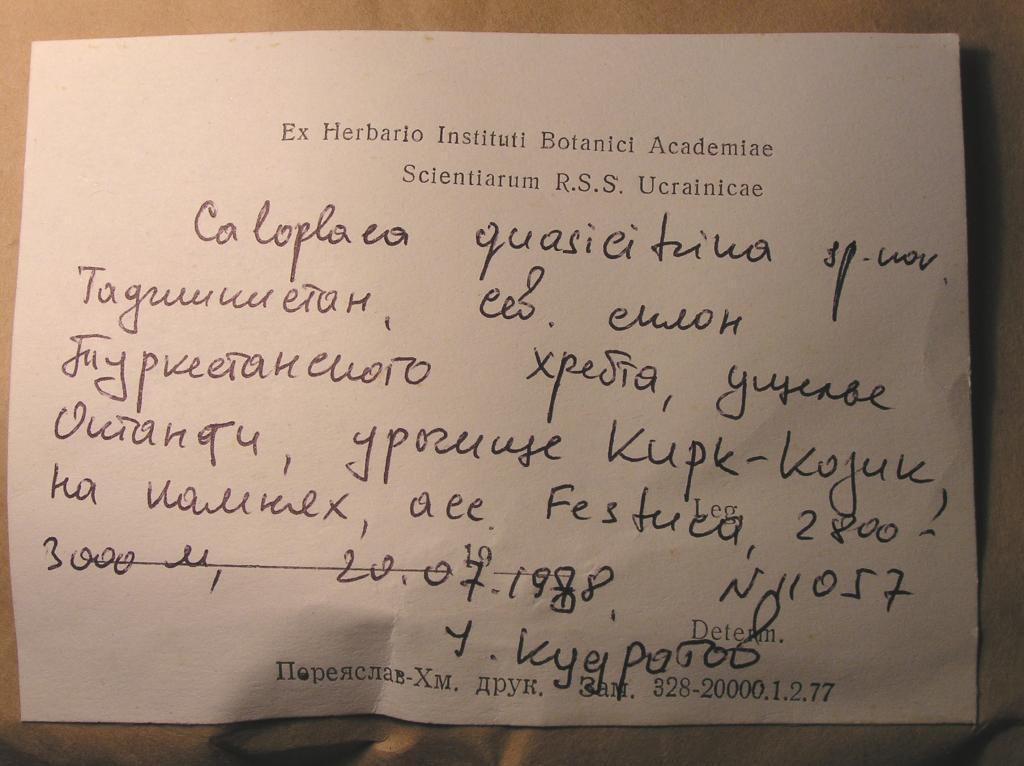 Ex Herbario Instituti Botanici Academiae
Scientiarum R.S.S. Ucrainicae
Caloplaca quasicitrina sp. nov.
Таджикистан, сев. склон
Туркестанского хребта, ущелье
урочище Кирк-Козик,
на камнях, асс. Festuca, 2800-
Leg.
3000 м, 20.07.1988, N 11057
19
Determ.
И. Кудратов
Переяслав-Хм. друк. Зам. 328-20000.1.2.77